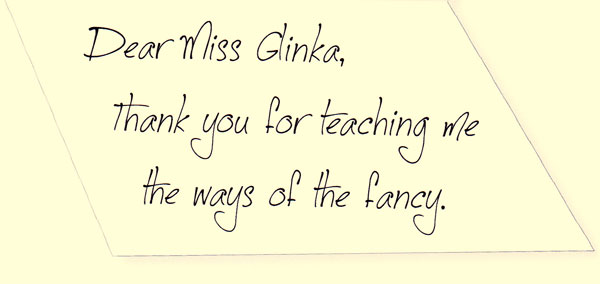 Dear Miss Glinka,
Thank you for teaching me
the ways of the fancy.